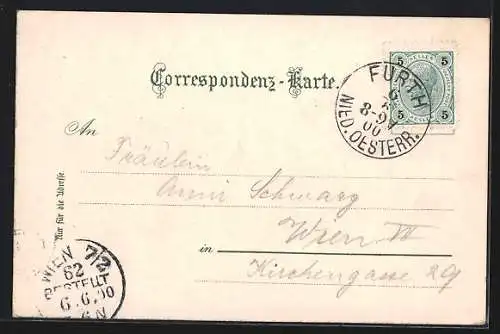 Correspondenz-Karte.
5 5
5 5
FURTH
6
8-9V
00
NIED. OESTERR.
An
Fräulein
Anni Schwarz
Wien
in
Kirchengasse 29
Nur für die Adresse.
WIEN 7/2
62
BESTELLT
6.6.00